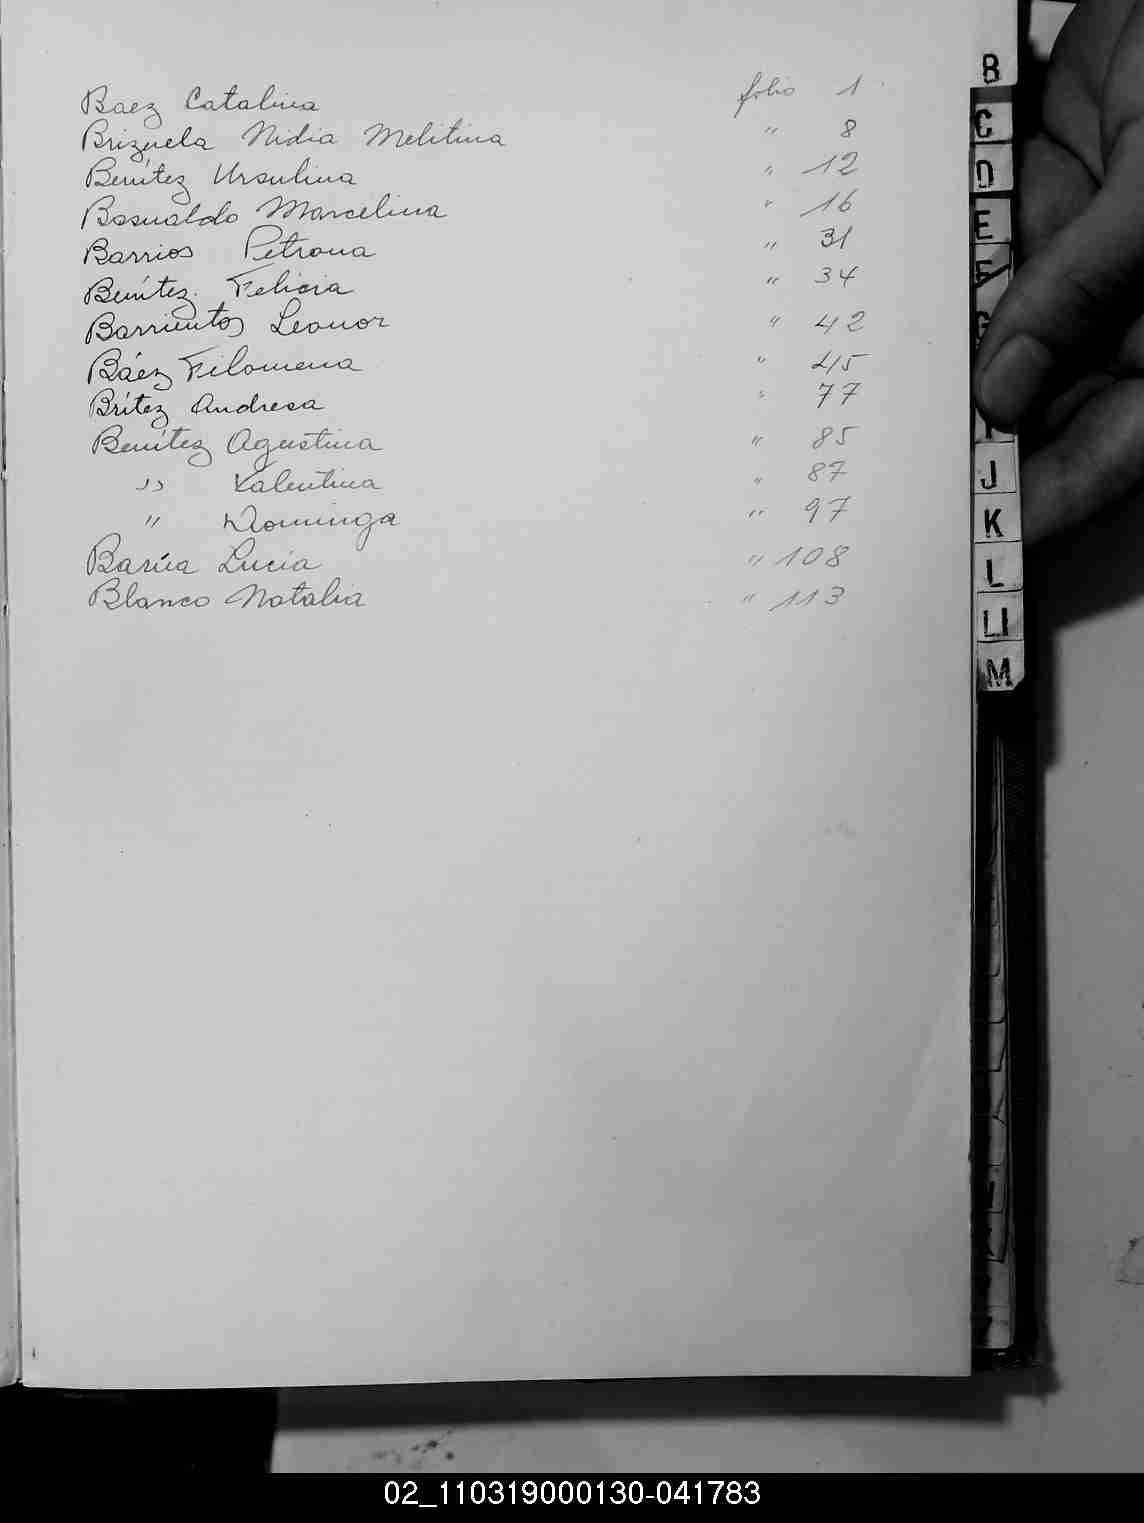 Baez Catalina folio 1
Brizuela Nidia Melitina " 8
Benítez Ursulina " 12
Basualdo Marcelina " 16
Barrios Petrona " 31
Benítez Felicia " 34
Barrientos Leonor " 42
Báez Filomena " 45
Brítez Andresa " 77
Benítez Agustina " 85
" Valentina " 87
" Dominga " 97
Barúa Lucía " 108
Blanco Natalia " 113
B
C
D
E
F
G
J
K
L
Ll
M
02_110319000130-041783